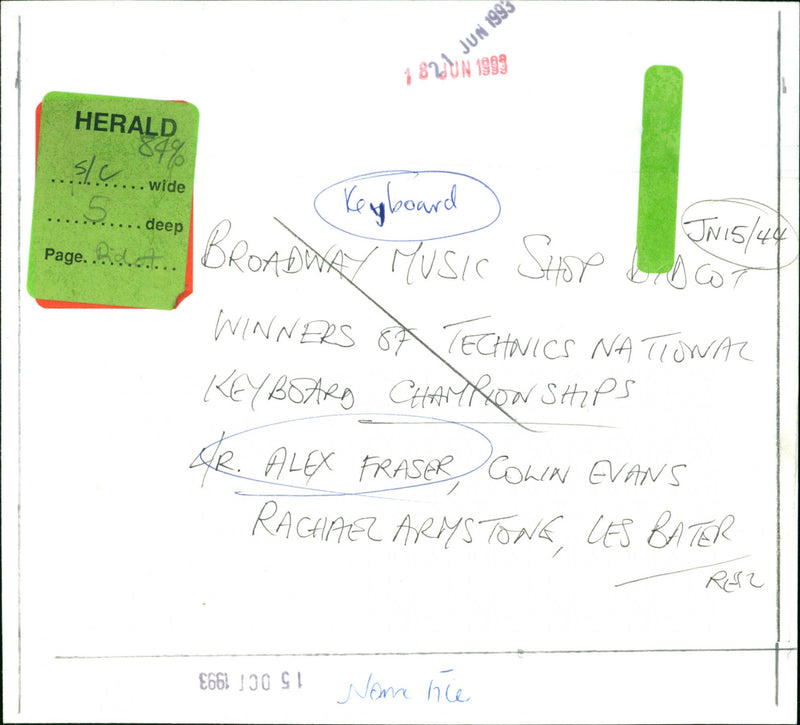 21 JUN 1993
18 JUN 1993
HERALD
84%
S/C wide
5 deep
Page.
Keyboard
JN15/44
BROADWAY MUSIC SHOP DIDCOT
WINNERS OF TECHNICS NATIONAL
KEYBOARD CHAMPIONSHIPS
L/R. ALEX FRASER, COLIN EVANS
RACHAEL ARMSTONG, LES BATER
15 OCT 1993
Name file